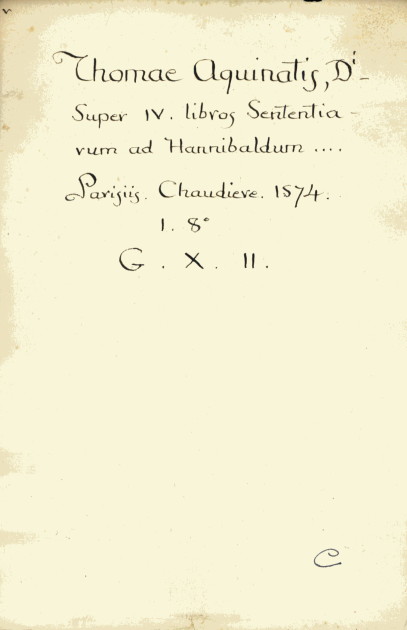 Thomae Aquinatis, Di-
Super IV. libros Sententia-
rum ad Hannibaldum ....
Parisiis. Chaudiere. 1574.
1. 8°
G. X. 11.
C